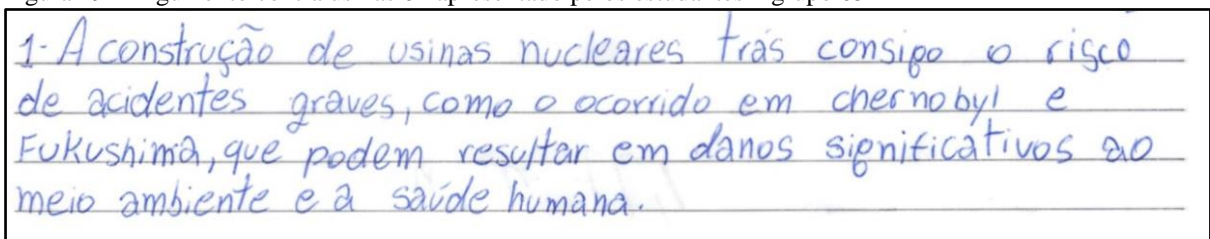 1- A construção de usinas nucleares trás consigo o risco
de acidentes graves, como o ocorrido em chernobyl e
Fukushima, que podem resultar em danos significativos ao
meio ambiente e a saúde humana.